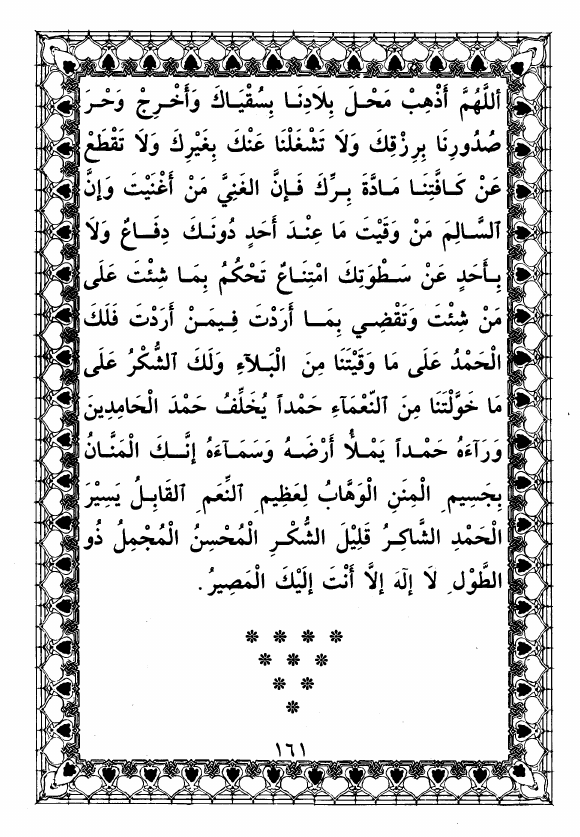 أَللَّهُمَّ أَذْهِبْ مَحْلَ بِلَادِنَا بِسُقْيَاكَ وَأَخْرِجْ وَحْرَ
صُدُورِنَا بِرِزْقِكَ وَلَا تَشْغَلْنَا عَنْكَ بِغَيْرِكَ وَلَا تَقْطَعْ
عَنْ كَافَّتِنَا مَادَّةَ بِرِّكَ فَإِنَّ الغَنِيَّ مَنْ أَغْنَيْتَ وَإِنَّ
ٱلسَّالِمَ مَنْ وَقَيْتَ مَا عِنْدَ أَحَدٍ دُونَكَ دِفَاعٌ وَلَا
بِأَحَدٍ عَنْ سَطْوَتِكَ امْتِنَاعٌ تَحْكُمُ بِمَا شِئْتَ عَلَى
مَنْ شِئْتَ وَتَقْضِي بِمَا أَرَدْتَ فِيمَنْ أَرَدْتَ فَلَكَ
الْحَمْدُ عَلَى مَا وَقَيْتَنَا مِنَ الْبَلَآءِ وَلَكَ ٱلشُّكْرُ عَلَى
مَا خَوَّلْتَنَا مِنَ ٱلنَّعْمَآءِ حَمْداً يُخَلِّفُ حَمْدَ الْحَامِدِينَ
وَرَآءَهُ حَمْداً يَمْلأُ أَرْضَهُ وَسَمَآءَهُ إِنَّكَ الْمَنَّانُ
بِجَسِيمِ الْمِنَنِ الْوَهَّابُ لِعَظِيمِ ٱلنِّعَمِ القَابِلُ يَسِيْرَ
الْحَمْدِ الشَّاكِرُ قَلِيْلَ الشُّكْرِ الْمُحْسِنُ الْمُجْمِلُ ذُو
الطَّوْلِ لَا إِلٰهَ إِلَّا أَنْتَ إِلَيْكَ الْمَصِيرُ.
١٦١